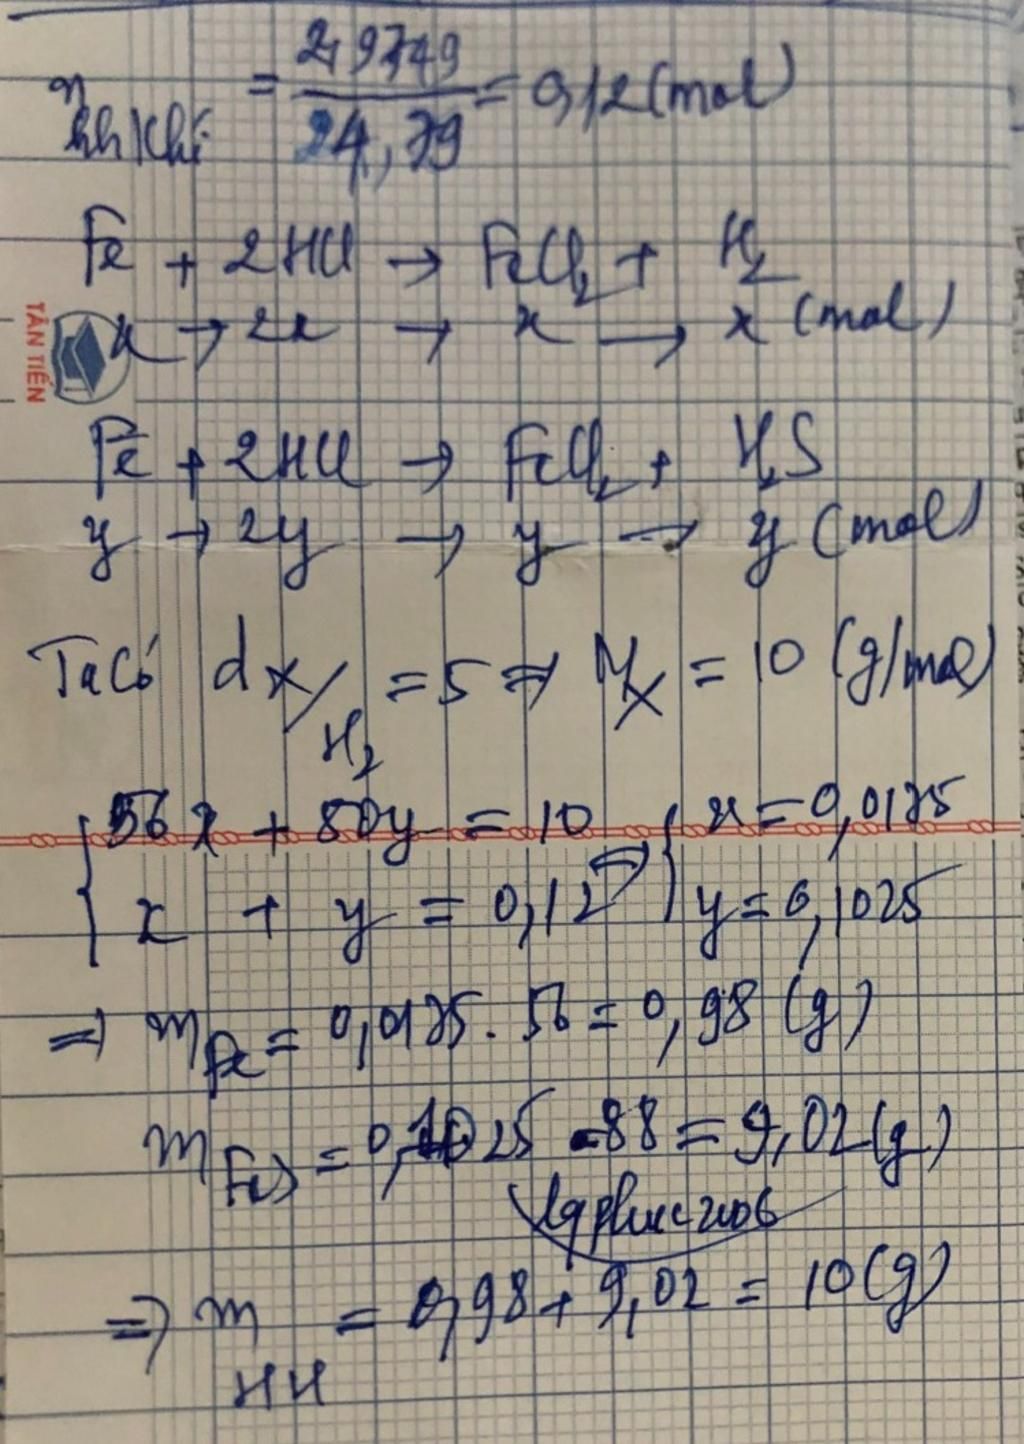 n hh khí = 2,9749 / 24,79 = 0,12 (mol)
Fe + 2HCl → FeCl2 + H2
TÂN TIẾN
x → 2x → x → x (mol)
Fe + 2HCl → FeCl2 + H2S
y → 2y → y → y (mol)
Ta có d X/H2 = 5 => MX = 10 (g/mol)
56x + 88y = 10 x = 0,0175
x + y = 0,12 => y = 0,1025
=> mFe = 0,0175. 56 = 0,98 (g)
mFeS = 0,1025 . 88 = 9,02 (g)
=> m HH = 0,98 + 9,02 = 10 (g)